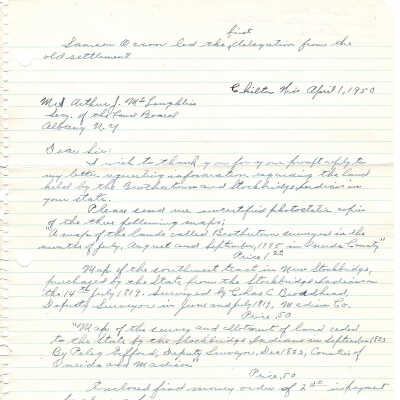 first
Samson Occom led the delegation from the
old settlement
Chilton Wis April 1, 1950
Mr Arthur J. McLoughlin
Secy. of the Land Board
Albany N.Y
Dear Sir:
I wish to thank you for your prompt reply to
my letter requesting information regarding the land
held by the Brothertown and Stockbridge Indians in
your state.
Please send me uncertified photostatic copies
of the three following maps;
"A map of the lands called Brothertown surveyed in the
months of July, August and September, 1795 in Oneida County"
Price 1.00
Map of the southwest tract in New Stockbridge,
purchased by the State from the Stockbridge Indians on
the 14th July 1819. Surveyed by Chas C. Brodhead
Deputy Surveyor in June and July 1819, Madison Co.
Price .50
"Map of the survey and allotment of land ceded
to the State by the Stockbridge Indians in September 1822
By Peleg Gifford, Deputy Surveyor, Dec 1822, Counties of
Oneida and Madison"
Price .50
Enclosed find money order of 2.00 in payment